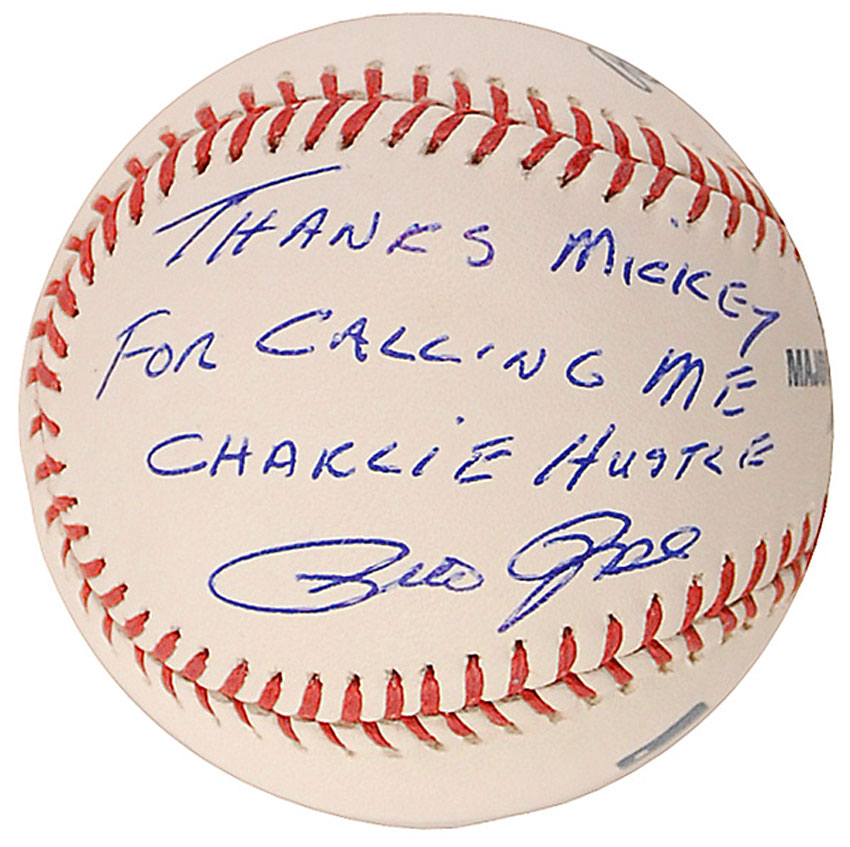 THANKS MICKEY
FOR CALLING ME
CHARLIE HUSTLE
Pete Rose